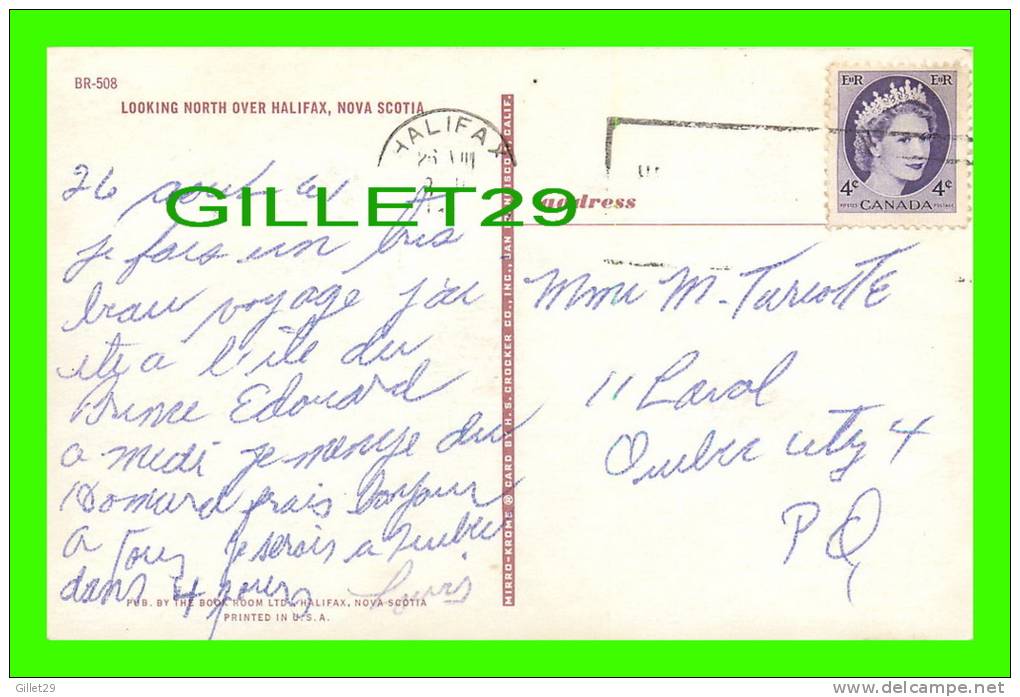 BR-508
LOOKING NORTH OVER HALIFAX, NOVA SCOTIA
HALIFAX
26 VIII
EIIR EIIR
4¢ 4¢
POSTES CANADA POSTAGE
GILLET29
address
26 aout
je fais un tres
beau voyage j'ai
ete a l'ile du
Prince Edouard
a midi je mange du
Homard frais Bonjour
a Tous je serais a Quebec
dans 4 jours Louis
PUB. BY THE BOOK ROOM LTD., HALIFAX, NOVA SCOTIA
PRINTED IN U.S.A.
MIRRO-KROME ® CARD BY H. S. CROCKER CO., INC., SAN FRANCISCO, CALIF.
Mme M. Turcotte
11 Laval
Quebec City 4
P Q
Gillet29
www.delcampe.net